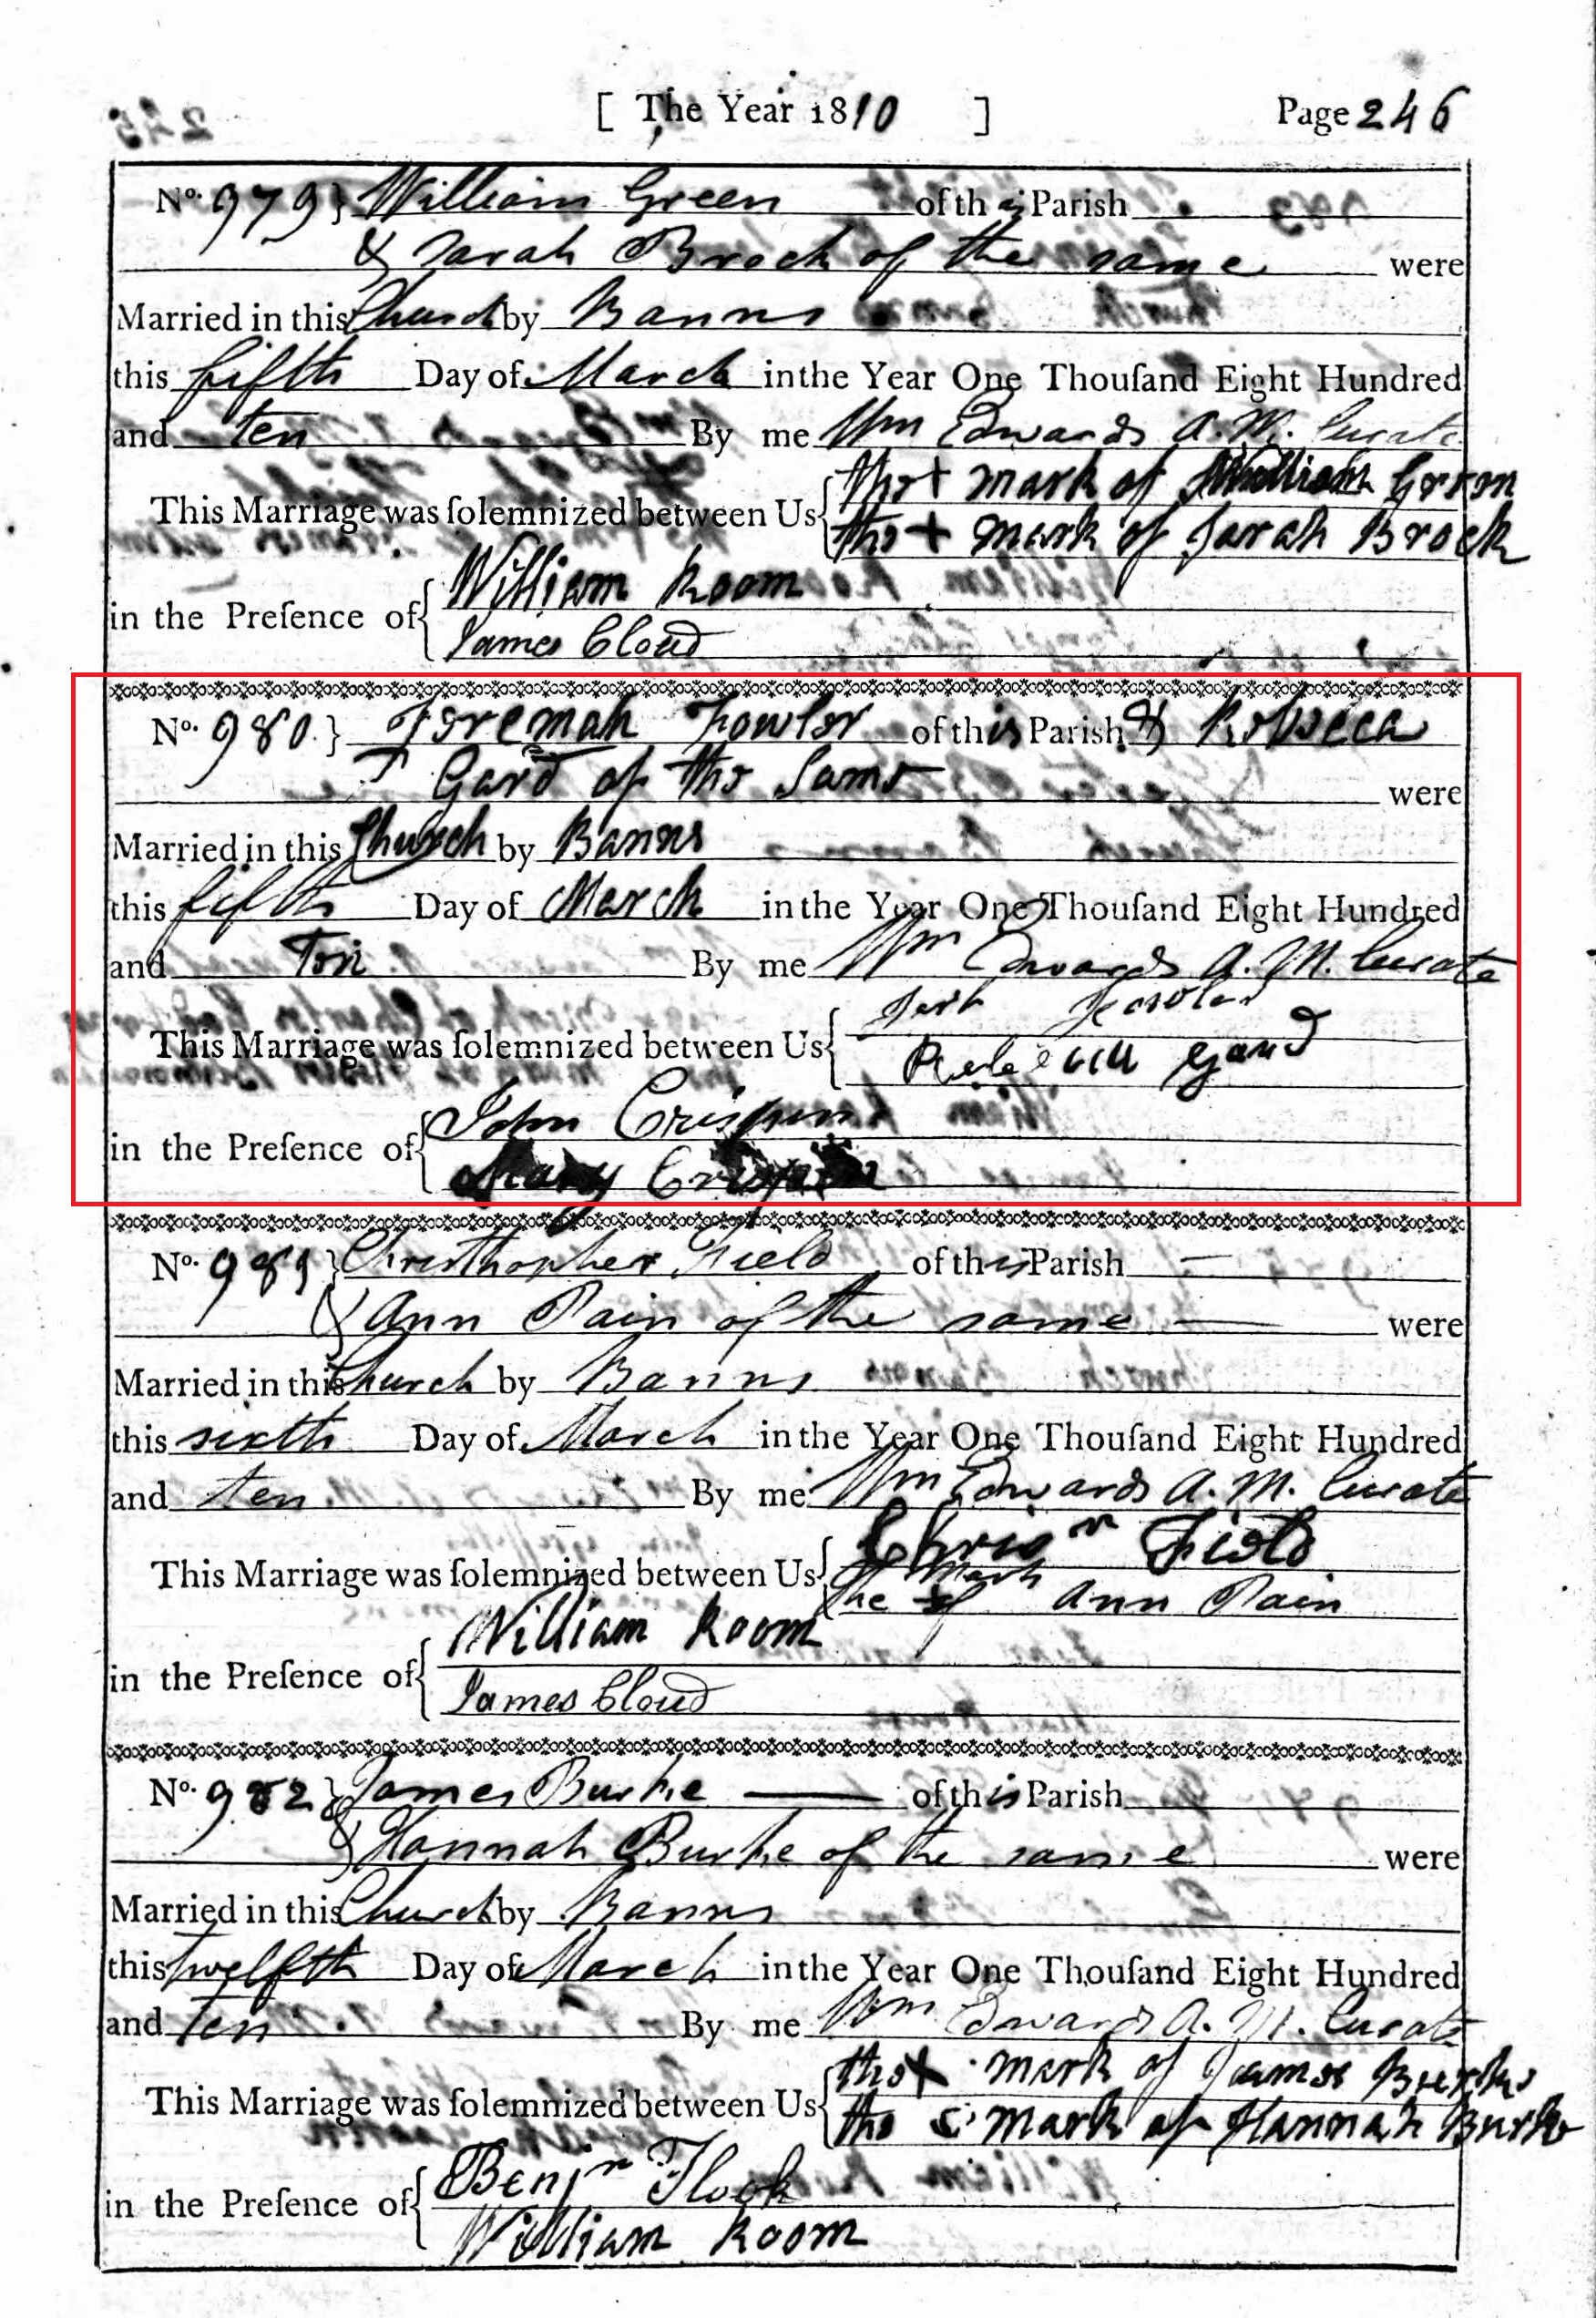 [ The Year 1810 ] Page 246
No. 979 } William Green of this Parish
& Sarah Brock of the same were
Married in this Church by Banns
this fifth Day of March in the Year One Thouſand Eight Hundred
and ten By me Wm Edwards A. M. Curate
This Marriage was ſolemnized between Us { the + mark of William Green
the + mark of Sarah Brock
in the Preſence of { William Room
James Cloud
No. 980. } Jeremah Fowler of this Parish & Rebecca
Gard of the Same were
Married in this Church by Banns
this fifth Day of March in the Year One Thouſand Eight Hundred
and Ten By me Wm Edwards A. M. Curate
This Marriage was ſolemnized between Us { Jerh Fowler
Rebecca Gard
in the Preſence of { John Crispin
Mary Crispin
No. 981 } Christhopher Field of this Parish
& Ann Pain of the same were
Married in this Church by Banns
this sixth Day of March in the Year One Thouſand Eight Hundred
and ten By me Wm Edwards A. M. Curate
This Marriage was ſolemnized between Us { Field
the mark of Ann Pain
in the Preſence of { William Room
James Cloud
No. 982 } James Burke of this Parish
& Hannah Burke of the same were
Married in this Church by Banns
this twelfth Day of March in the Year One Thouſand Eight Hundred
and ten By me Wm Edwards A. M. Curate
This Marriage was ſolemnized between Us { the X mark of James Burke
the mark of Hannah Burke
in the Preſence of { Benjn Flook
William Room